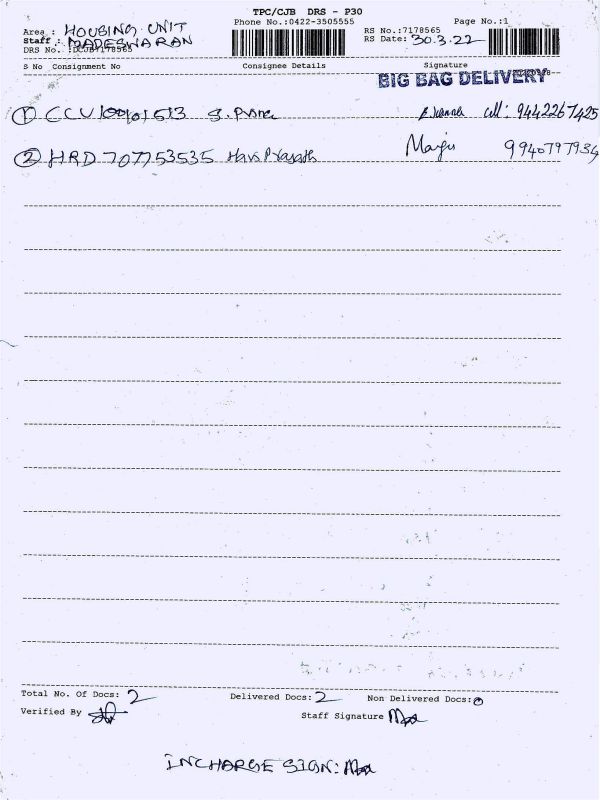 TPC/CJB DRS - P30
Phone No.:0422-3505555 Page No.:1
Area : HOUSING UNIT
Staff : MADESWARAN
DRS No. :DCJB7178565
RS No.:7178565
RS Date: 30.3.22
S No Consignment No Consignee Details Signature
BIG BAG DELIVERY
① S. cell: 9442267425
② HRD 707753535 Hari Prasath 9940797934
Total No. Of Docs: 2 Delivered Docs: 2 Non Delivered Docs: 0
Verified By Staff Signature
INCHARGE SIGN: